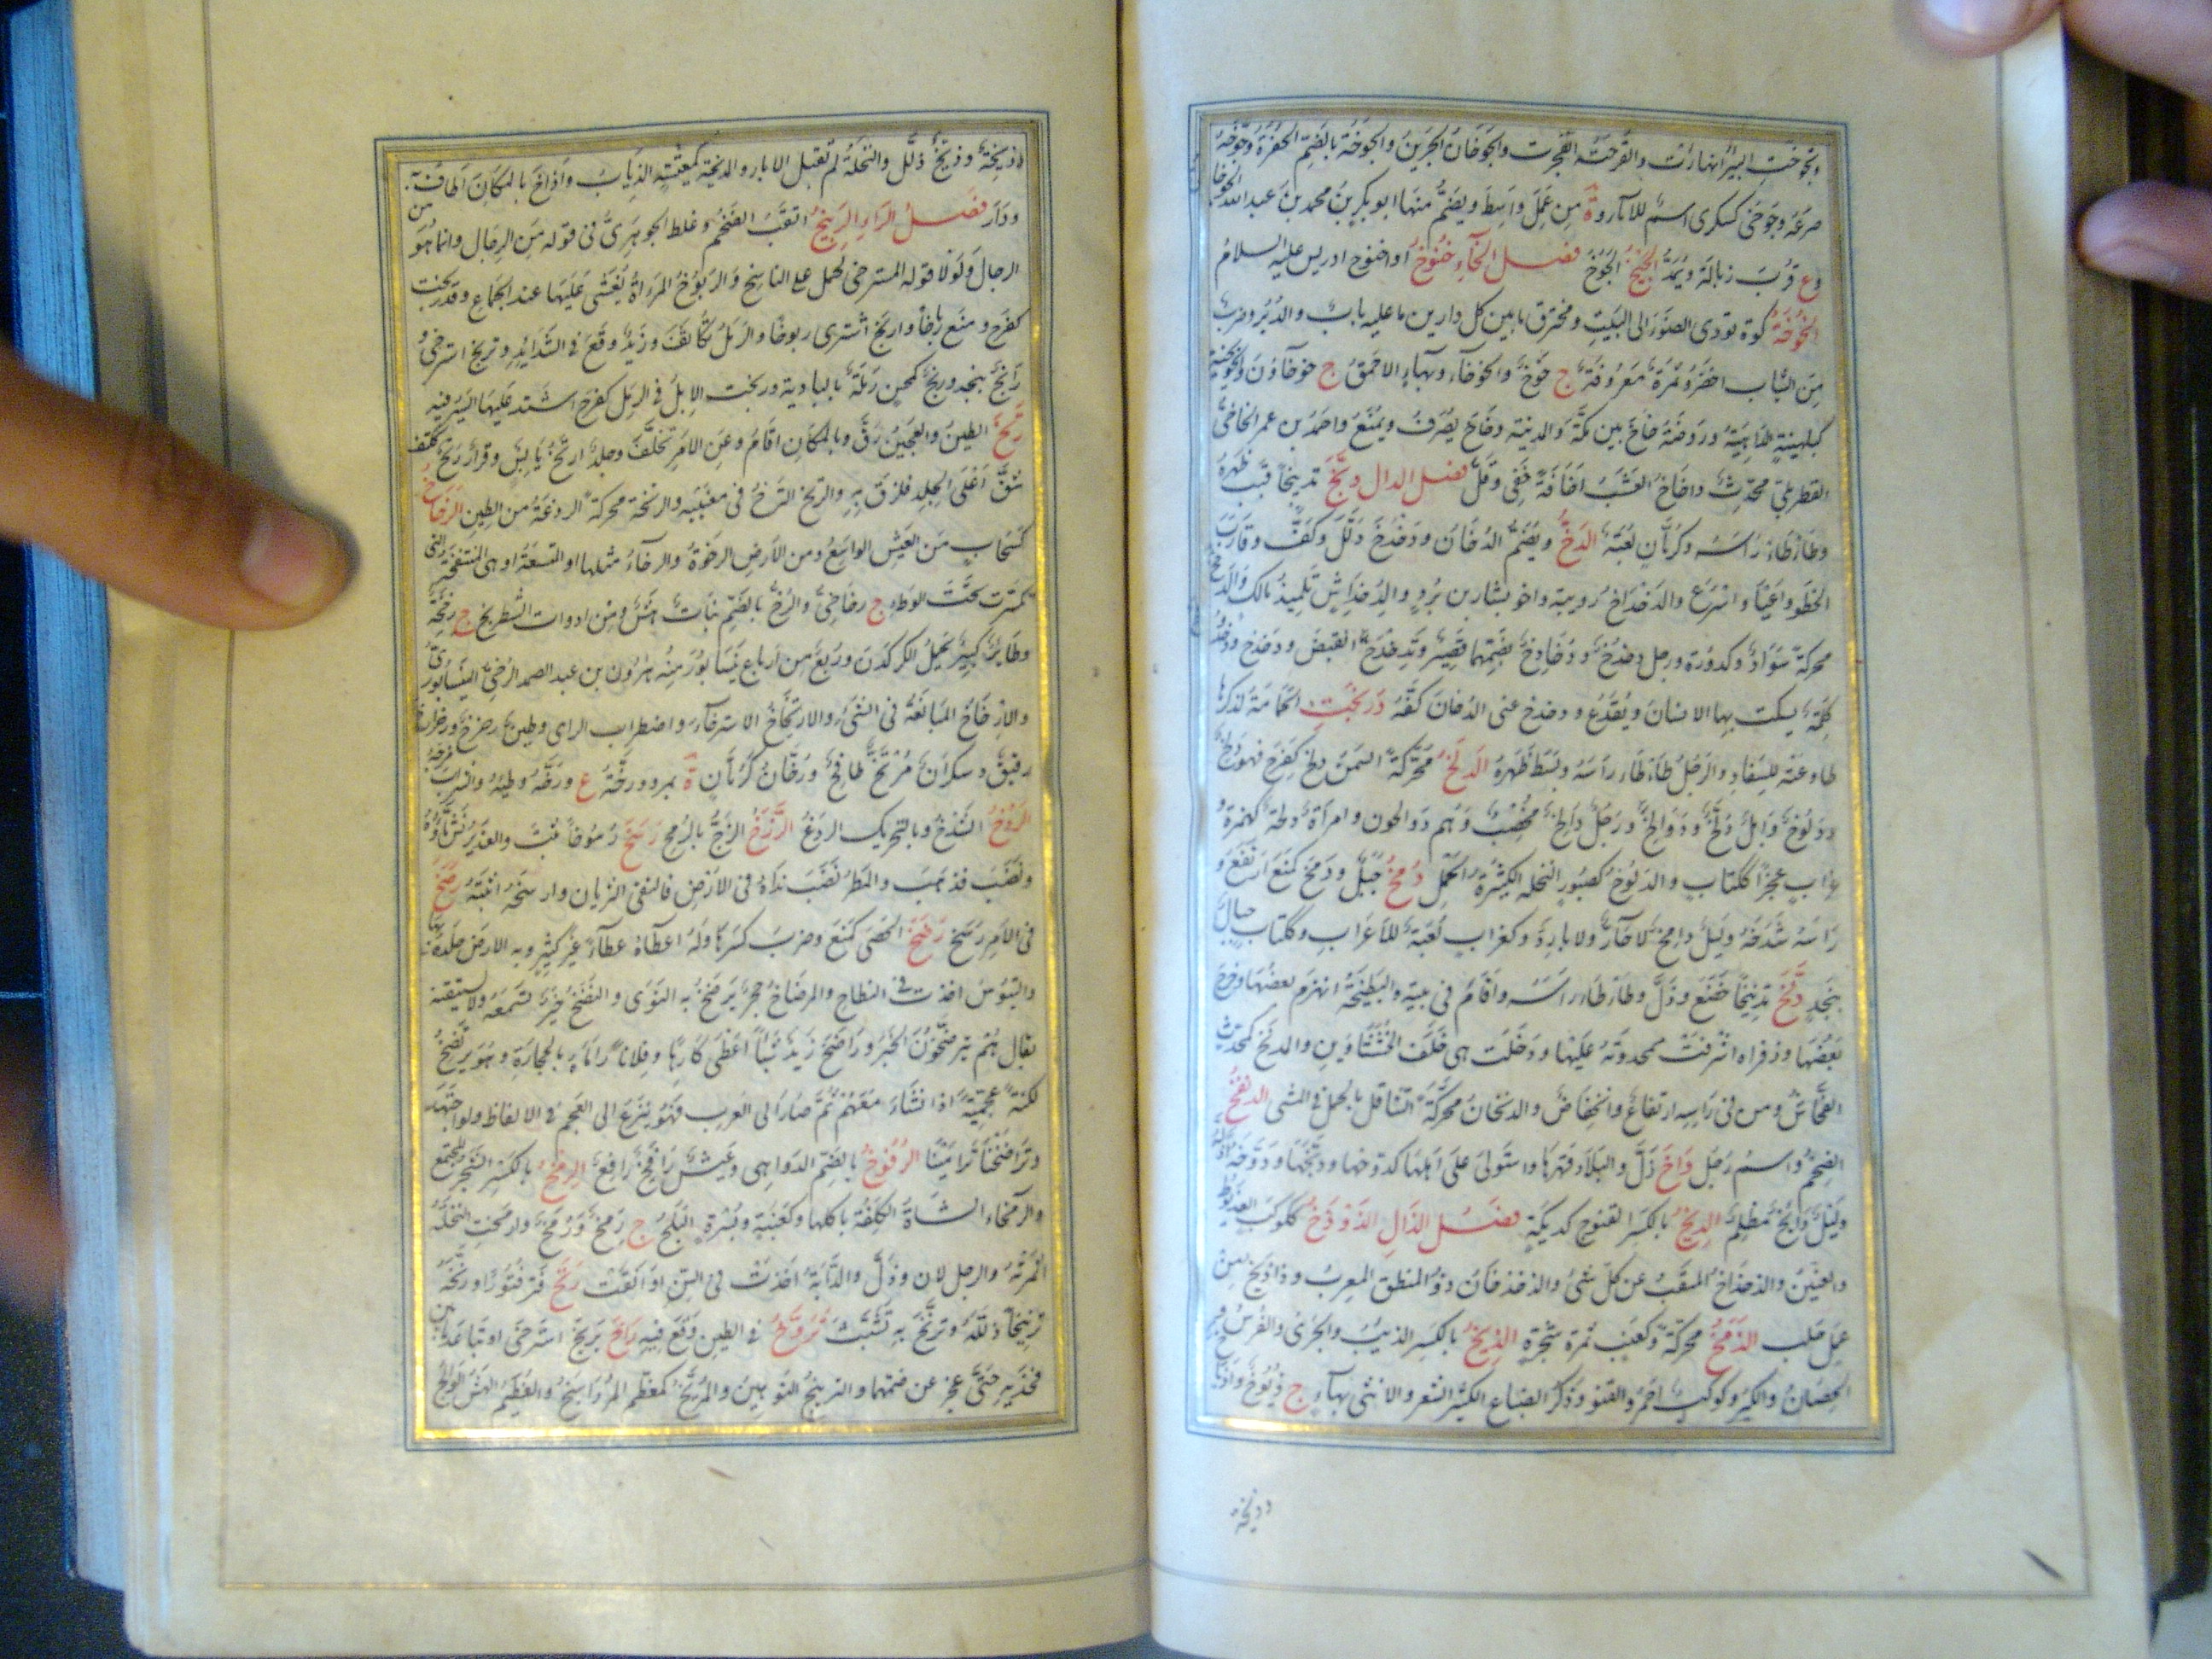 وتجوخت البئر انهارت والقرحة انفجرت والجوخان الجرين والجوخة بالضم الحفرة وجوخه
صرعه وجوخى كسكرى اسم للاماء وة من عمل واسط ويضم منها ابو بكر بن محمد بن عبد الله الجوخانى
وع قرب زبالة ويمد الجيخ الجوخ فصل الخاء خنوخ او اخنوخ ادريس عليه السلام
الخوخة كوة تودى الضوء الى البيت ومخترق ما بين كل دارين ما عليه باب والدبر وضرب
من الثياب اخضر وثمرة معروفة ج خوخ والخوخاء وبهاء الاحمق ج خوخاؤن والخويخية
كبلهنية الداهية وروضة خاخ بين مكة والمدينة وخاخ يصرف ويمنع واحمد بن عمر الخاخى
القطربلى محدث واخاخ العشب اخاخة خفى وقل فصل الدال دبخ تدبيخا قبب ظهره
وطأطأ رأسه وكرمان لعبة الدخ ويضم الدخان ودخدخ ذلل وكف وقارب
الخطو واعيا واسرع والدخداخ دويبة واخو بشار بن برد والدخداش تلميذ مالك والدخخ
محركة سواد وكدورة ورجل دخدخ ودخادخ بضمهما قصير وتدخدخ انقبض ودخدخ ودخ
كلمة يسكت بها الانسان ويقدع ودخدخ عنى الدخان كفه دربخت الحمامة لذكرها
طاوعته للسفاد والرجل طأطأ رأسه وبسط ظهره الدلخ محركة السمن دلخ كفرح فهو دلخ
ودلوخ وابل دلخ ودوالخ ورجل دالخ مخصب وهم دوالخون وامرأة دلخة كهمزة و
غراب عجزا ككتاب والدلوخ كصبور النخلة الكثيرة الحمل دمخ جبل ودمخ كمنع ارتفع و
رأسه شدخه وليل دامخ لا حار ولا بارد وكغراب لعبة للاعراب وككتاب جبال
بنجد دنخ تدنيخا خضع وذل وطأطأ رأسه واقام فى بيته والبطيخة انهزم بعضها وخرج
بعضها وذفراه اشرفت قمحدوته عليها ودخلت هى خلف الخششاوين والدنخ كمحدث
الفحاش ومن فى رأسه ارتفاع وانخفاض والدنخان محركة التثاقل بالحمل فى المشى الدنفخ
الضخم واسم رجل داخ ذل والبلاد قهرها واستولى على اهلها كدوخها وديخها ودوخه اذله
وليل دائخ مظلم الديخ بالكسر القنو ج كديكة فصل الذال الذوذخ ككوكب العذيوط
والعنين والذخذاخ المنقب عن كل شىء والذخذخان ذو المنطق المعرب وذاذيخ ة من
عمل حلب الذمخ محركة وكعنب ثمرة شجرة الذيخ بالكسر الذيب والجرىء والفرس
الحصان والكبر وكوكب احمر والقنو وذكر الضباع الكثير الشعر والانثى بهاء ج ذيوخ واذياخ
وذيخة
وذيخة وذيخ ذلل والنخلة لم تقبل الابار والذيخة كمعشبة الذياب واذاخ بالمكان اطاف به
ودار فصل الراء الربيخ القتب الضخم وغلط الجوهرى فى قوله من الرجال وانما هو من
الرحال ولولا قوله المسترخى لحمل على الناسخ والربوخ المرأة يغشى عليها عند الجماع وقد ربخت
كفرح ومنع رباخا واربخ اشترى ربوخا والرمل تكاثف وزيد وقع فى الشدائد وتربخ استرخى و
رابخ بنجد وربخ كمحسن رملة بالبادية وربخت الابل فى الرمل كفرح اشتد عليها السير فيه
رتخ الطين والعجين رق وبالمكان اقام وعن الامر تخلف وجلد ارتخ يابس وقراد رتخ ككتف
شق اعلى الجلد فلزق به والرتخ الترخ فى معنييه والرتخة محركة الردغة من الطين الرخاخ
كسحاب من العيش الواسع ومن الارض الرخوة والرخاء مثلها او المتسعة او هى المنتفخة التى
تكسر تحت الوطء ج رخاخى والرخ بالضم نبات هش ومن ادوات الشطرنج ج رخخة
وطائر كبير يحمل الكركدن وربع من ارباع نيسابور منه هرون بن عبد الصمد الرخى النيسابورى
والارخاخ المبالغة فى الشىء والارتخاخ الاسترخاء واضطراب الراى وطين رخرخ ورخراخ
رقيق وسكران مرتخ طافح ورخان كرمان ة بمرو ورخة ع ورخه وطئه والشراب مزجه
الردخ الشدخ وبالتحريك الردغ الرزخ الزج بالرمح رسخ رسوخا ثبت والغدير نش ماؤه
ونضب فذهب والمطر نضب نداه فى الارض فالتقى الثريان وارسخه اثبته رصخ
فى الامر رسخ رضخ الحصى كمنع وضرب كسرها وله اعطاه عطاء غير كثير وبه الارض جلده بها
والتيوس اخذت فى النطاح والمرضاخ حجر يرضخ به النوى والرضخ خبر تسمعه ولا تستيقنه
يقال هم يترضخون الخبر وراضخ زيد شيئا اعطى كارها وفلانا راماه بالحجارة وهو يرتضخ
لكنة عجمية اذا نشأ معهم ثم صار الى العرب فهو ينزع الى العجم فى الالفاظ ولو اجتهد
وتراضخنا ترامينا الرفوخ بالضم الدواهى وعيش رافخ رافغ الرمخ بالكسر الشجر المجتمع
والرمخاء الشاة الكلفة باكلها وكعنبة وبسرة البلح ج رمخ ورمخ وارمخت النخلة
اثمرته والرجل لان وذل والدابة اخذت فى السن او القت رنخ فتر فتورا ورنخه
ترنيخا ذلله وترنخ به تشبث تروخ فى الطين وقع فيه راخ يريخ استرخى او تباعد ما بين
فخذيه حتى عجز عن ضمهما والتريبخ التوهين والمريخ كمعظم المرداسنج والعظيم الهش الوالج